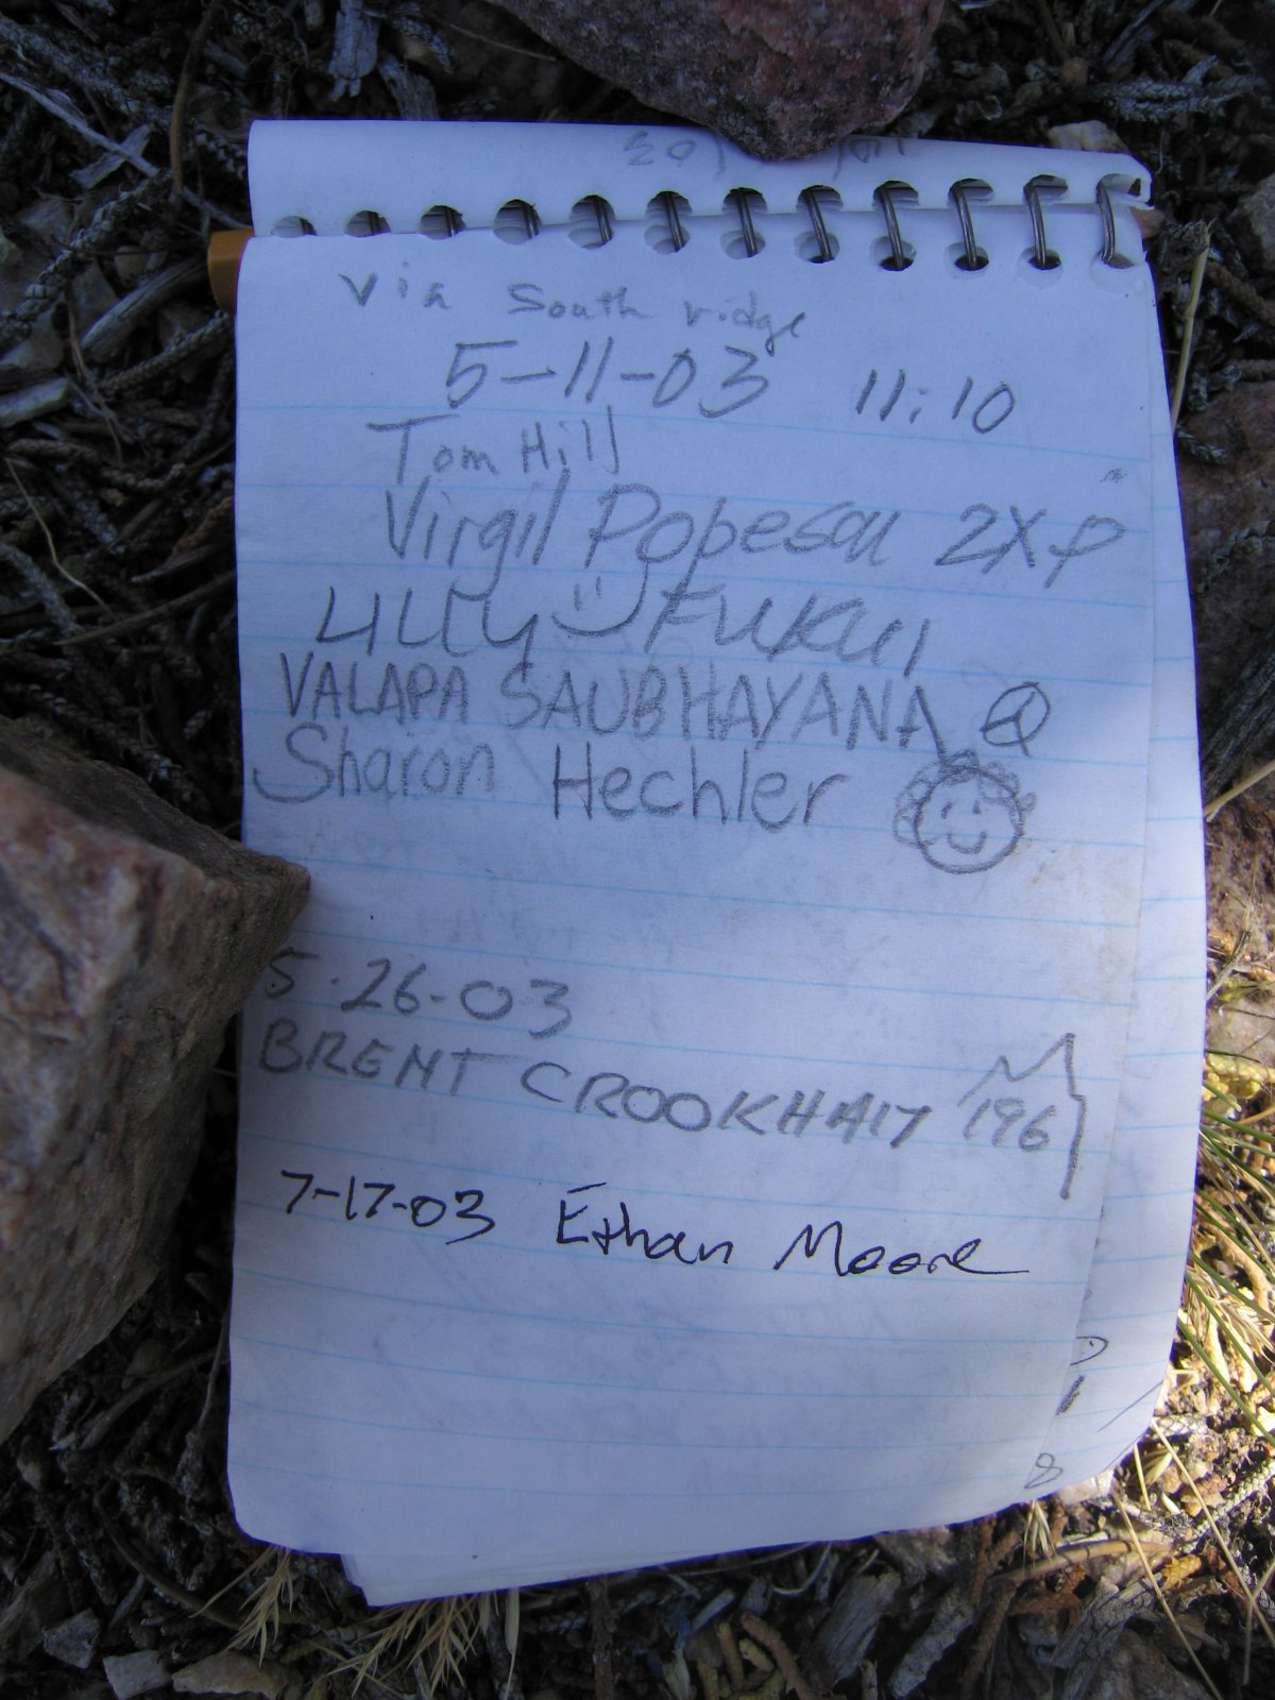 Via South ridge
5-11-03 11:10
Tom Hill
Virgil Popescu 2X
LILLY FUKUI
VALAPA SAUBHAYANA
Sharon Hechler
5.26-03
BRENT CROOKHAM 196
7-17-03 Ethan Moore
8